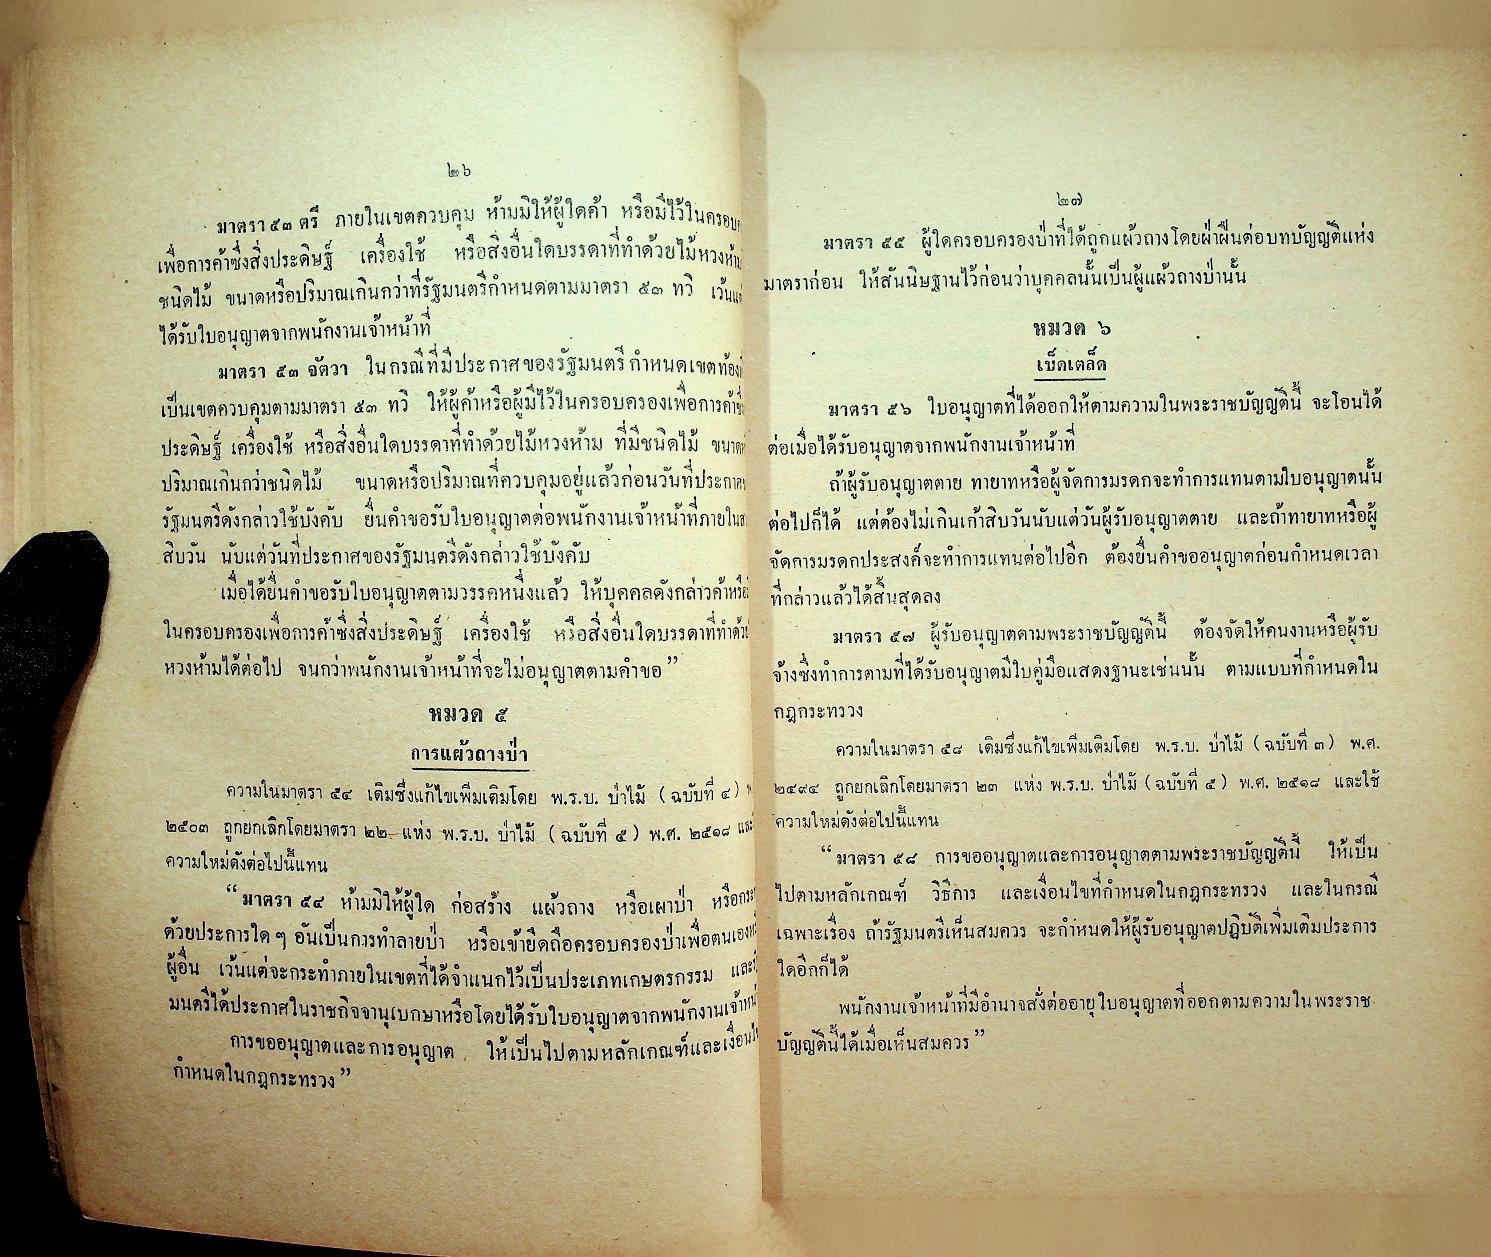 ๒๖
มาตรา ๕๓ ตรี ภายในเขตควบคุม ห้ามมิให้ผู้ใดค้า หรือมีไว้ในครอบค
เพื่อการค้าซึ่งสิ่งประดิษฐ์ เครื่องใช้ หรือสิ่งอื่นใดบรรดาที่ทำด้วยไม้หวงห้าม
ชนิดไม้ ขนาดหรือปริมาณเกินกว่าที่รัฐมนตรีกำหนดตามมาตรา ๕๓ ทวิ เว้นแต่
ได้รับใบอนุญาตจากพนักงานเจ้าหน้าที่
มาตรา ๕๓ จัตวา ในกรณีที่มีประกาศของรัฐมนตรี กำหนดเขตท้องที่
เป็นเขตควบคุมตามมาตรา ๕๓ ทวิ ให้ผู้ค้าหรือผู้มีไว้ในครอบครองเพื่อการค้าซึ่
ประดิษฐ์ เครื่องใช้ หรือสิ่งอื่นใดบรรดาที่ทำด้วยไม้หวงห้าม ที่มีชนิดไม้ ขนาด
ปริมาณเกินกว่าชนิดไม้ ขนาดหรือปริมาณที่ควบคุมอยู่แล้วก่อนวันที่ประกาศ
รัฐมนตรีดังกล่าวใช้บังคับ ยื่นคำขอรับใบอนุญาตต่อพนักงานเจ้าหน้าที่ภายในส
สิบวัน นับแต่วันที่ประกาศของรัฐมนตรีดังกล่าวใช้บังคับ
เมื่อได้ยื่นคำขอรับใบอนุญาตตามวรรคหนึ่งแล้ว ให้บุคคลดังกล่าวค้าหรือ
ในครอบครองเพื่อการค้าซึ่งสิ่งประดิษฐ์ เครื่องใช้ หรือสิ่งอื่นใดบรรดาที่ทำด้วย
หวงห้ามได้ต่อไป จนกว่าพนักงานเจ้าหน้าที่จะไม่อนุญาตตามคำขอ”
หมวด ๕
การแผ้วถางป่า
ความในมาตรา ๕๔ เดิมซึ่งแก้ไขเพิ่มเติมโดย พ.ร.บ. ป่าไม้ (ฉบับที่ ๔)
๒๕๐๓ ถูกยกเลิกโดยมาตรา ๒๒ แห่ง พ.ร.บ. ป่าไม้ (ฉบับที่ ๕) พ.ศ. ๒๕๑๘ และ
ความใหม่ดังต่อไปนี้แทน
“มาตรา ๕๔ ห้ามมิให้ผู้ใด ก่อสร้าง แผ้วถาง หรือเผาป่า หรือกระ
ด้วยประการใด ๆ อันเป็นการทำลายป่า หรือเข้ายึดถือครอบครองป่าเพื่อตนเองห
ผู้อื่น เว้นแต่จะกระทำภายในเขตที่ได้จำแนกไว้เป็นประเภทเกษตรกรรม และ
มนตรีได้ประกาศในราชกิจจานุเบกษาหรือโดยได้รับใบอนุญาตจากพนักงานเจ้าหน้
การขออนุญาตและการอนุญาต ให้เป็นไปตามหลักเกณฑ์และเงื่อนไ
กำหนดในกฎกระทรวง”
๒๗
มาตรา ๕๕ ผู้ใดครอบครองป่าที่ได้ถูกแผ้วถางโดยฝ่าฝืนต่อบทบัญญัติแห่ง
มาตราก่อน ให้สันนิษฐานไว้ก่อนว่าบุคคลนั้นเป็นผู้แผ้วถางป่านั้น
หมวด ๖
เบ็ดเตล็ด
มาตรา ๕๖ ใบอนุญาตที่ได้ออกให้ตามความในพระราชบัญญัตินี้ จะโอนได้
ต่อเมื่อได้รับอนุญาตจากพนักงานเจ้าหน้าที่
ถ้าผู้รับอนุญาตตาย ทายาทหรือผู้จัดการมรดกจะทำการแทนตามใบอนุญาตนั้น
ต่อไปก็ได้ แต่ต้องไม่เกินเก้าสิบวันนับแต่วันผู้รับอนุญาตตาย และถ้าทายาทหรือผู้
จัดการมรดกประสงค์จะทำการแทนต่อไปอีก ต้องยื่นคำขออนุญาตก่อนกำหนดเวลา
ที่กล่าวแล้วได้สิ้นสุดลง
มาตรา ๕๗ ผู้รับอนุญาตตามพระราชบัญญัตินี้ ต้องจัดให้คนงานหรือผู้รับ
จ้างซึ่งทำการตามที่ได้รับอนุญาตมีใบคู่มือแสดงฐานะเช่นนั้น ตามแบบที่กำหนดใน
กฎกระทรวง
ความในมาตรา ๕๘ เดิมซึ่งแก้ไขเพิ่มเติมโดย พ.ร.บ. ป่าไม้ (ฉบับที่ ๓) พ.ศ.
๒๔๙๔ ถูกยกเลิกโดยมาตรา ๒๓ แห่ง พ.ร.บ. ป่าไม้ (ฉบับที่ ๕) พ.ศ. ๒๕๑๘ และใช้
ความใหม่ดังต่อไปนี้แทน
“มาตรา ๕๘ การขออนุญาตและการอนุญาตตามพระราชบัญญัตินี้ ให้เป็น
ไปตามหลักเกณฑ์ วิธีการ และเงื่อนไขที่กำหนดในกฎกระทรวง และในกรณี
เฉพาะเรื่อง ถ้ารัฐมนตรีเห็นสมควร จะกำหนดให้ผู้รับอนุญาตปฏิบัติเพิ่มเติมประการ
ใดอีกก็ได้
พนักงานเจ้าหน้าที่มีอำนาจสั่งต่ออายุใบอนุญาตที่ออกตามความในพระราช
บัญญัตินี้ได้เมื่อเห็นสมควร”